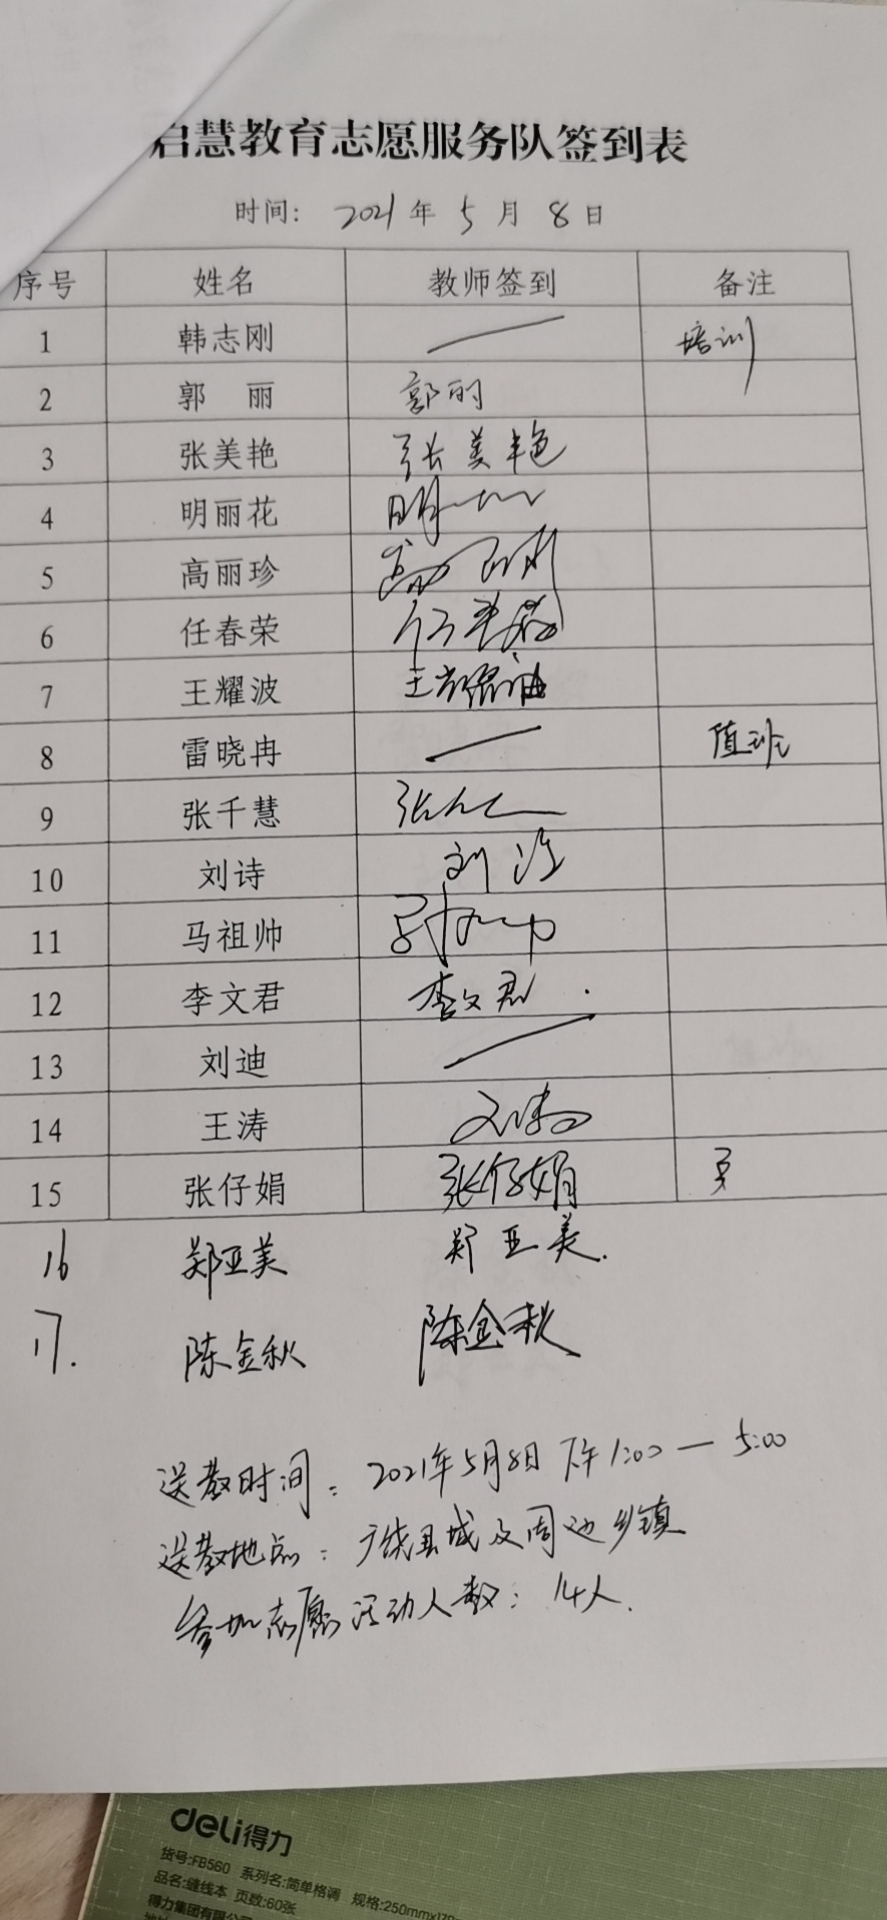 启慧教育志愿服务队签到表
时间: 2021年 5月 8日
序号 姓名 教师签到 备注
1 韩志刚 培训
2 郭丽 郭丽
3 张美艳 张美艳
4 明丽花 明
5 高丽珍 高丽珍
6 任春荣 任春荣
7 王耀波 王耀波
8 雷晓冉 值班
9 张千慧 张
10 刘诗 刘诗
11 马祖帅
12 李文君 李文君
13 刘迪
14 王涛
15 张仔娟 张仔娟
16 郑亚美 郑亚美.
17. 陈金秋 陈金秋
送教时间: 2021年5月8日 下午1:00 — 5:00
送教地点: 广饶县城及周边乡镇
参加志愿活动人数: 14人.
deli得力
货号:FB560 系列名:简单格调 规格:250mmx
品名:缝线本 页数:60张
得力集团有限公司